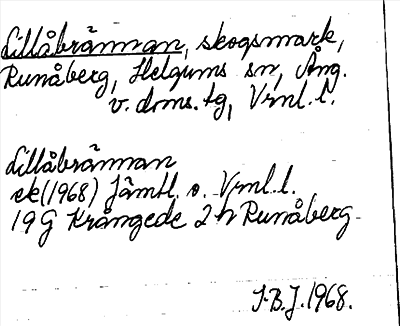 Lillåbrännan, skogsmark,
Runåberg, Helgums sn, Ång.
v. doms. tg, Vrnl. l.
Lillåbrännan
ek (1968) Jämtl. o. Vrnl. l.
19G Krångede 2h Runåberg
S.B.J. 1968.